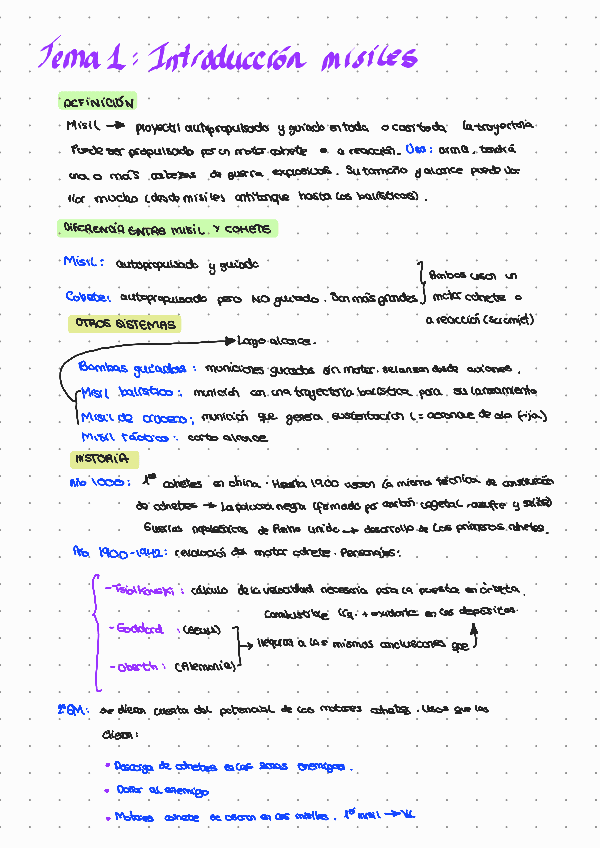 Tema 1: Introducción misiles
DEFINICIÓN
Misil → proyectil autopropulsado y guiado en toda o casi toda la trayectoria.
Puede ser propulsado por un motor cohete o a reacción. Uso: arma, tendrá
una o más cabezas de guerra explosivas. Su tamaño y alcance puede va-
riar mucho (desde misiles antitanque hasta los balísticos).
DIFERENCIA ENTRE MISIL Y COHETE
Misil: autopropulsado y guiado
Cohete: autopropulsado pero NO guiado. Son más grandes
Ambos usan un
motor cohete o
a reacción (scramjet)
OTROS SISTEMAS
Largo alcance.
Bombas guiadas: municiones guiadas sin motor. se lanzan desde aviones.
Misil balístico: munición con una trayectoria balística para su lanzamiento
Misil de crucero: munición que genera sustentación (= aeronave de ala fija)
Misil táctico: corto alcance
HISTORIA
Año 1000: 1os cohetes en china. Hasta 1900 usaron la misma técnica de construcción
de cohetes → La pólvora negra (formada por carbón vegetal, azufre y salitre)
Guerras napoleónicas de Reino Unido → desarrollo de los primeros cohetes.
Año 1900-1942: evolución del motor cohete. Personajes:
- Tsiolkovski: cálculo de la velocidad necesaria para la puesta en órbita.
combustible líq. + oxidante en los depósitos
- Goddard: (EEUU)
llegaron a las mismas conclusiones que
- Oberth: (Alemania)
2ª GM: se dieron cuenta del potencial de los motores cohetes. Usos que les
dieron:
• Descarga de cohetes en las zonas enemigas.
• Dañar al enemigo
• Motores cohete se usaron en los misiles. 1er misil →